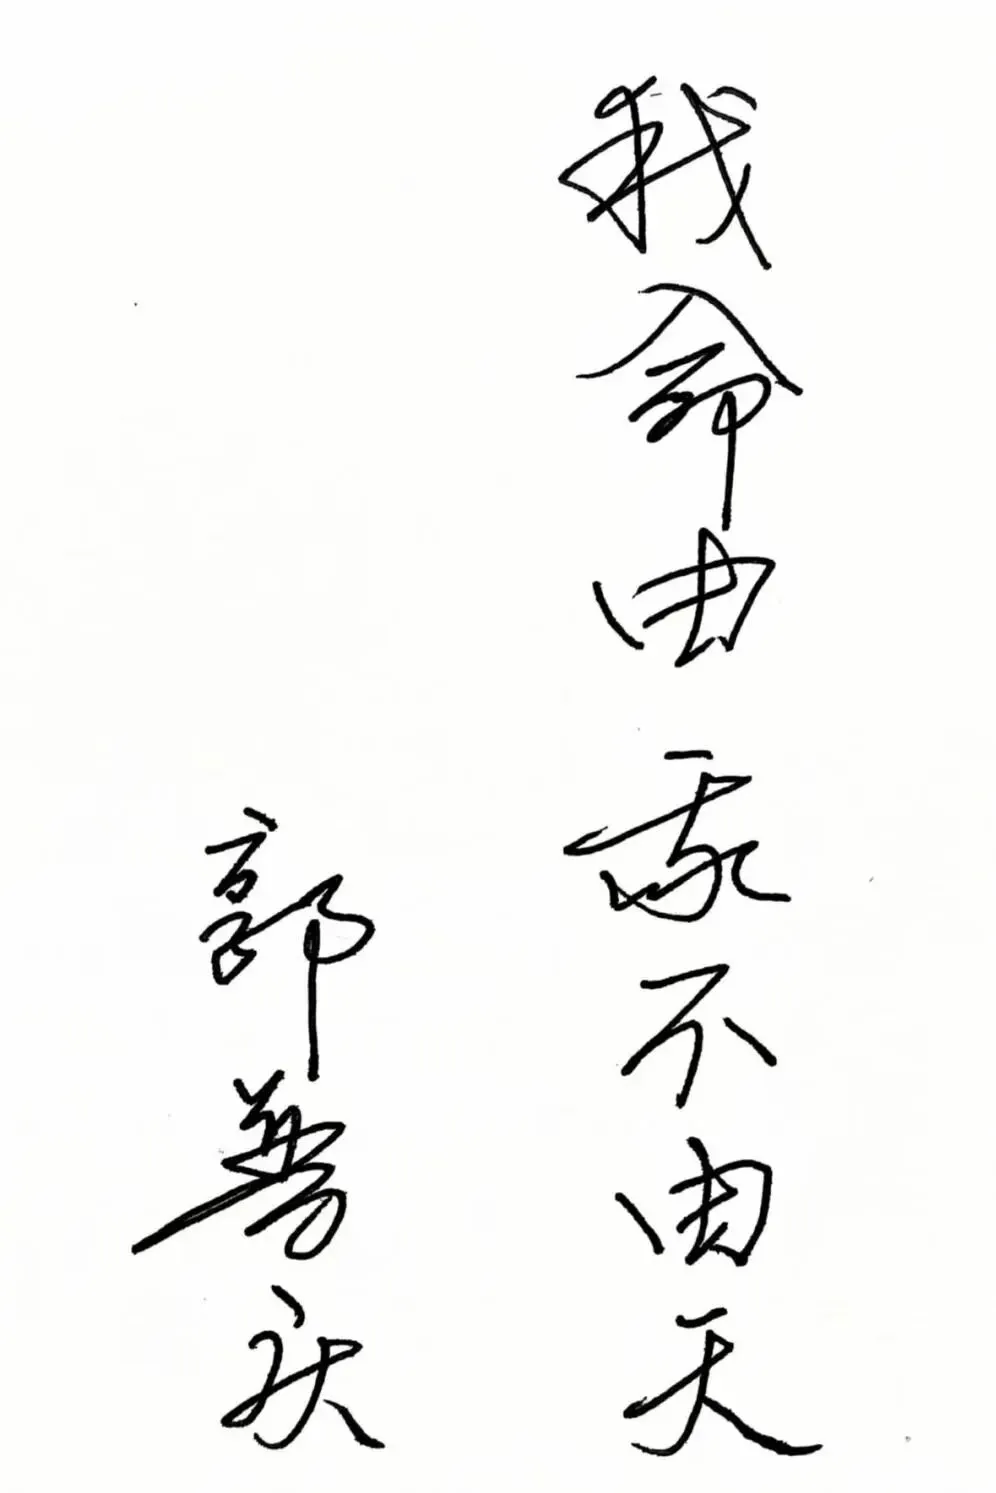 我命由我不由天
郭普庆